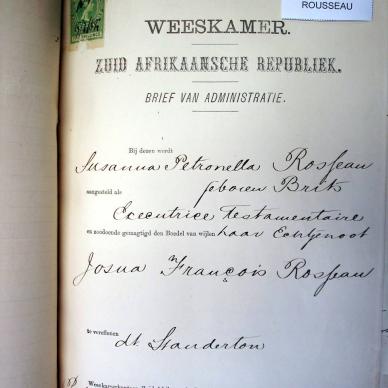 ROUSSEAU
WEESKAMER.
ZUID AFRIKAANSCHE REPUBLIEK.
BRIEF VAN ADMINISTRATIE.
Bij dezen wordt
Susanna Petronella Rosseau
geboren Brits
aangesteld als
Executrice Testamentaire
en zoodoende gemagtigd den Boedel van wijlen haar Echtgenoot
Josua François Rosseau
te vereffenen
dt. Standerton